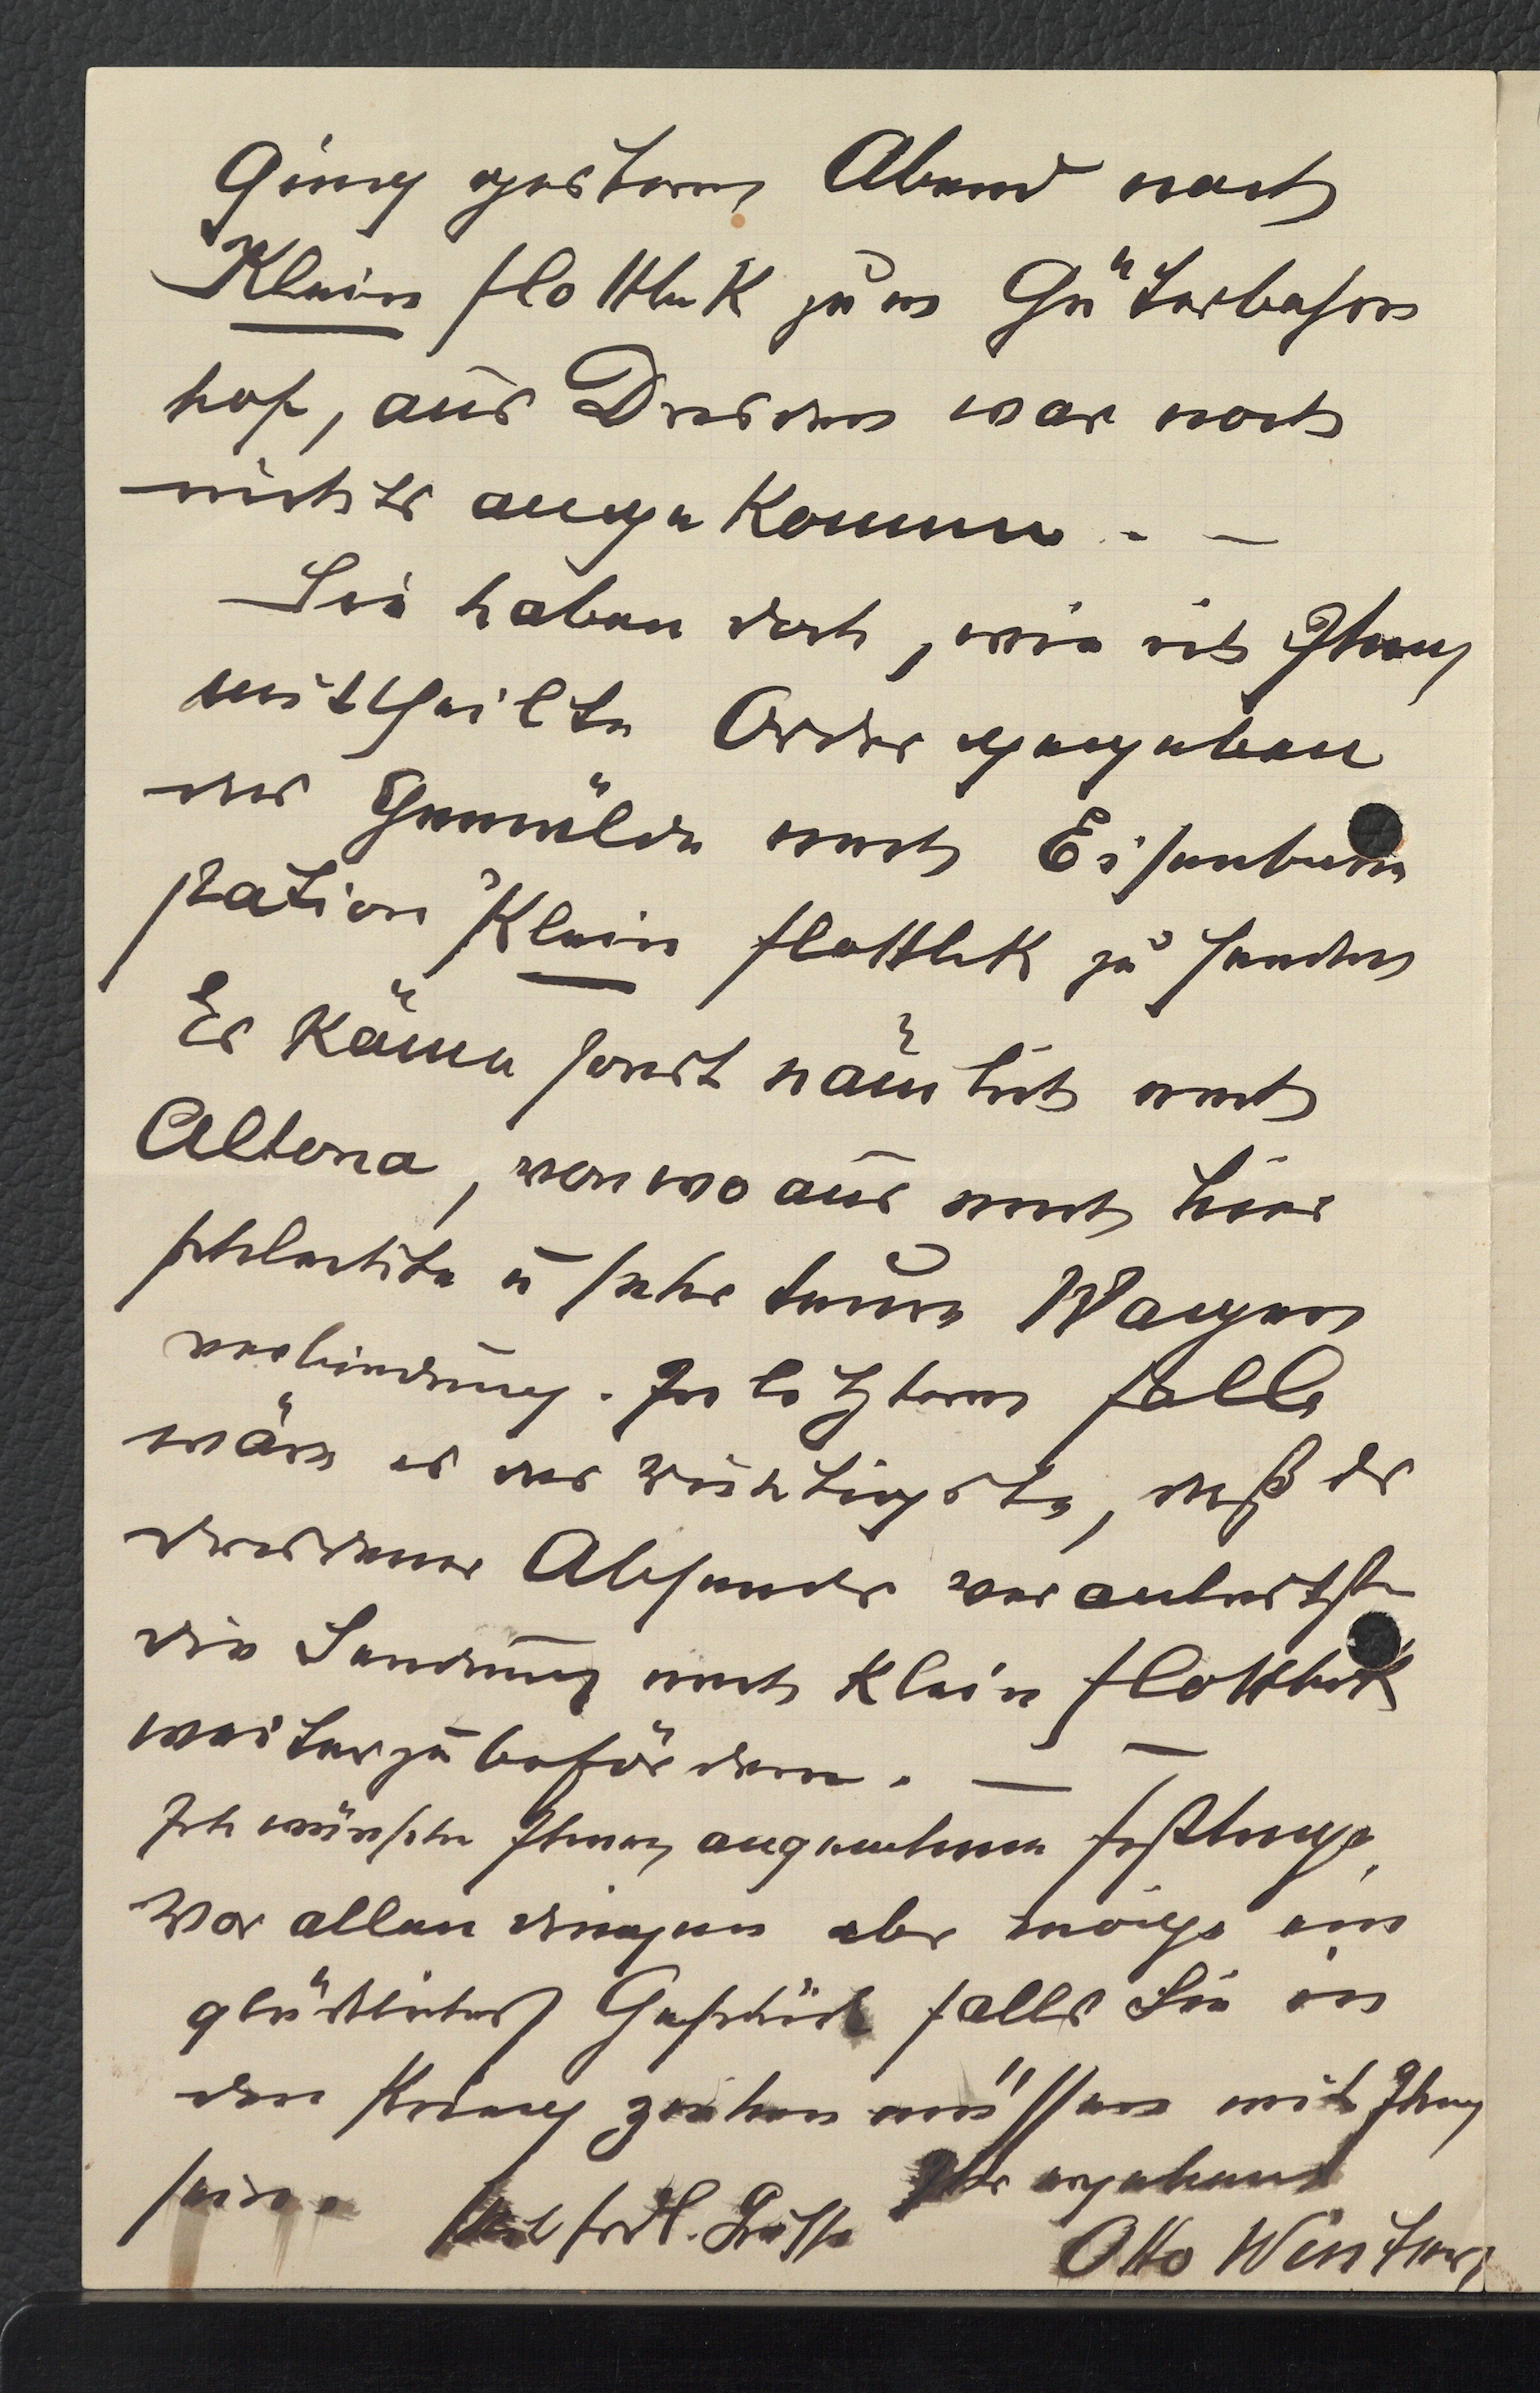 Ging gestern Abend nach
Klein flottbek zum Güterbahn
hof, aus Dresden war noch
nichts angekommen. —
Sie haben doch, wie ich Ihnen
mittheilte Order gegeben
das Gemälde nach Eisenbahn
station Klein flottbek zu senden
Es käme sonst nämlich nach
Altona, von wo aus nach hier
schlechte u sehr teure Wagen
verbindung. In letzterm falle
wäre es das richtigste, daß der
dresdener Absender veranlasste
die Sendung nach Klein flottbek
weiterzubefördern. — —
Ich wünsche Ihnen angenehme festtage,
Vor allen dingen aber möge ein
glückliches Geschick falls Sie in
den Krieg ziehen müssen mit Ihnen
sein. Mit frdl. Grüsse Ihr ergebener
Otto Winter